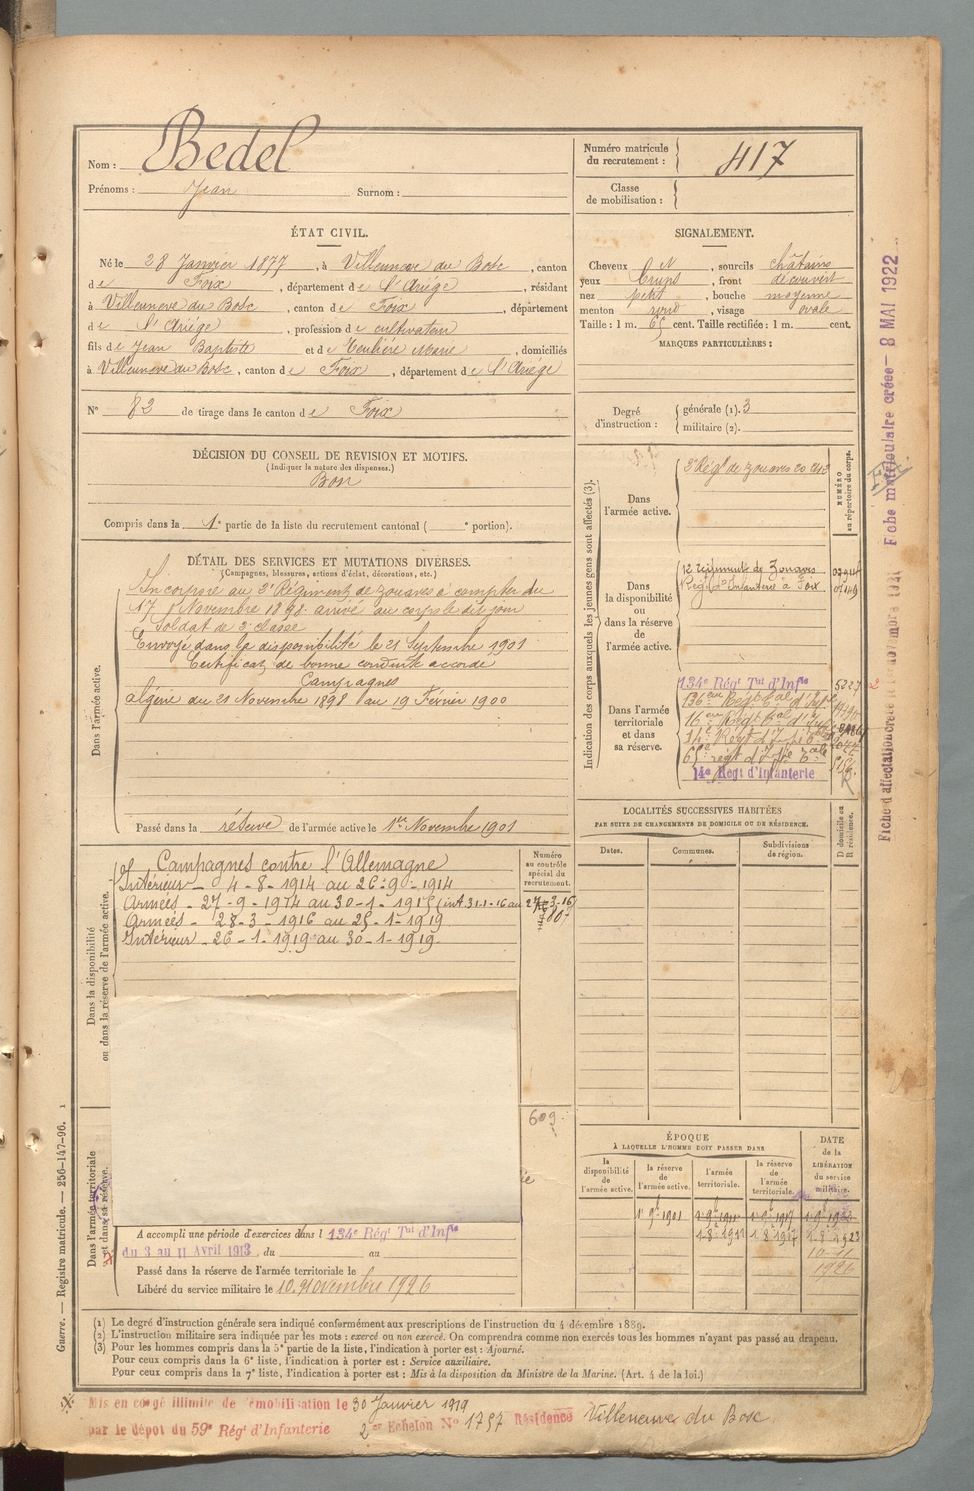 Nom : Bedel
Prénoms : Jean Surnom :
Numéro matricule du recrutement : 417
Classe de mobilisation :
ÉTAT CIVIL.
Né le 28 Janvier 1877, à Villeneuve du Bosc, canton
de Foix, département de l'Ariège, résidant
à Villeneuve du Bosc, canton de Foix, département
de l'Ariège, profession de cultivateur
fils de Jean Baptiste et de Teulière Marie, domiciliés
à Villeneuve du Bosc, canton de Foix, département de l'Ariège
N° 82 de tirage dans le canton de Foix
SIGNALEMENT.
Cheveux N, sourcils châtains
yeux bruns, front découvert
nez petit, bouche moyenne
menton rond, visage ovale
Taille : 1 m. 65 cent. Taille rectifiée : 1 m. cent.
MARQUES PARTICULIÈRES :
Degré d'instruction :
générale (1). 3
militaire (2).
DÉCISION DU CONSEIL DE REVISION ET MOTIFS.
(Indiquer la nature des dispenses.)
Bon
Compris dans la 1e partie de la liste du recrutement cantonal ( e portion).
DÉTAIL DES SERVICES ET MUTATIONS DIVERSES.
(Campagnes, blessures, actions d'éclat, décorations, etc.)
Dans l'armée active.
Incorporé au 3e Régiment de zouaves à compter du
17 Novembre 1898 arrivé au corps le dit jour
Soldat de 2e classe
Envoyé dans la disponibilité le 21 Septembre 1901
Certificat de bonne conduite accordé
Campagnes
Algérie du 21 Novembre 1898 au 19 Février 1900
Passé dans la réserve de l'armée active le 1er Novembre 1901
Dans la disponibilité ou dans la réserve de l'armée active.
Campagnes contre l'Allemagne
Intérieur - 4-8-1914 au 26-9-1914
Armées - 27-9-1914 au 30-1-1915 (int 31-1-16 au 27-3-16)
Armées - 28-3-1916 au 25-1-1919
Intérieur - 26-1-1919 au 30-1-1919.
Numéro au contrôle spécial du recrutement.
609
Dans l'armée territoriale et dans sa réserve.
A accompli une période d'exercices dans l 134e Régt Tal d'Infie
du 3 au 11 Avril 1913, du au
Passé dans la réserve de l'armée territoriale le
Libéré du service militaire le 10 Novembre 1926
Indication des corps auxquels les jeunes gens sont affectés (3).
Dans l'armée active.
3e Régt de zouaves
NUMÉRO au répertoire du corps.
Dans la disponibilité ou dans la réserve de l'armée active.
Régt d'Infanterie à Foix
Dans l'armée territoriale et dans sa réserve.
134e Régt Tal d'Infie 5227
14e Régt d'Infanterie
LOCALITÉS SUCCESSIVES HABITÉES
PAR SUITE DE CHANGEMENTS DE DOMICILE OU DE RÉSIDENCE.
Dates. Communes. Subdivisions de région. D domicile ou R résidence.
ÉPOQUE
À LAQUELLE L'HOMME DOIT PASSER DANS
la disponibilité de l'armée active. la réserve de l'armée active. l'armée territoriale. la réserve de l'armée territoriale.
DATE de la LIBÉRATION du service militaire.
1er 9bre 1901 1er 9bre 1911 1er 9bre 1917
1-8-1911 1-8-1917 1-8-1923
10-11
1926
(1) Le degré d'instruction générale sera indiqué conformément aux prescriptions de l'instruction du 4 décembre 1889.
(2) L'instruction militaire sera indiquée par les mots : exercé ou non exercé. On comprendra comme non exercés tous les hommes n'ayant pas passé au drapeau.
(3) Pour les hommes compris dans la 5e partie de la liste, l'indication à porter est : Ajourné.
Pour ceux compris dans la 6e liste, l'indication à porter est : Service auxiliaire.
Pour ceux compris dans la 7e liste, l'indication à porter est : Mis à la disposition du Ministre de la Marine. (Art. 4 de la loi.)
Mis en congé illimité de démobilisation le 30 Janvier 1919
par le dépôt du 59e Régt d'Infanterie 2e Echelon N° 1757 Résidence Villeneuve du Bosc
Guerre. — Registre matricule. — 256-147-96.
Fiche matriculaire créée - 8 MAI 1922